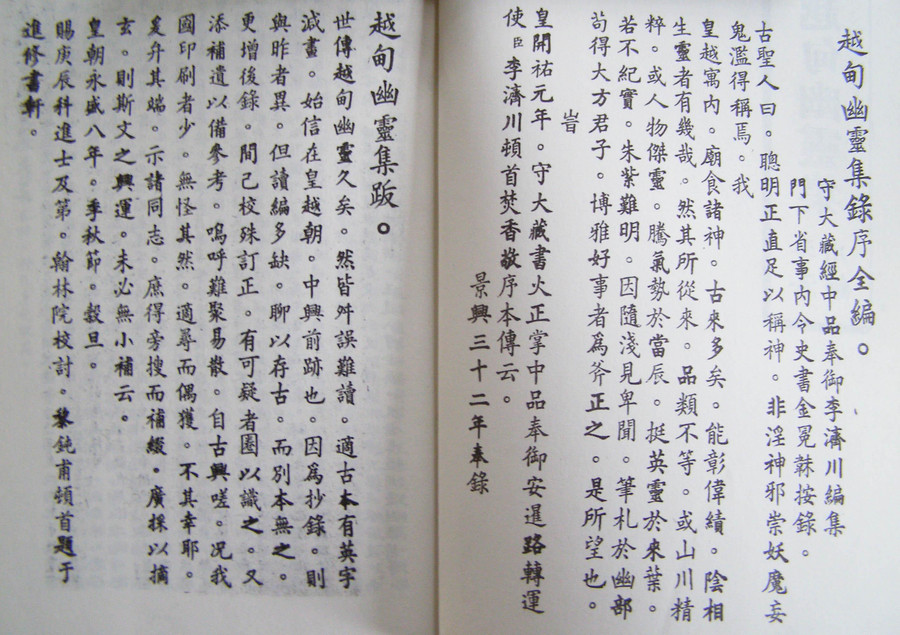 越甸幽靈集錄序全編。
守大藏經中品奉御李濟川編集
門下省事內令史書金冕漱按錄。
古聖人曰。聰明正直足以稱神。非淫神邪崇妖魔妄
鬼濫得稱焉。我
皇越寓內。廟食諸神。古來多矣。能彰偉績。陰相
生靈者有幾哉。然其所從來。品類不等。或山川精
粹。或人物傑靈。騰氣勢於當辰。挺英靈於來葉。
若不紀實。朱紫難明。因隨淺見卑聞。筆札於幽部
茍得大方君子。博雅好事者為斧正之。是所望也。
旹
皇開祐元年。守大藏書火正掌中品奉御安暹路轉運
使臣李濟川頓首焚香敬序本傳云。
景興三十二年奉錄
越甸幽靈集跋。
世傳越甸幽靈久矣。然皆舛誤難讀。適古本有英字
減畫。始信在皇越朝。中興前跡也。因為抄錄。則
與昨者異。但讀編多缺。聊以存古。而別本無之。
更增後錄。間己校殊訂正。有可疑者圈以識之。又
添補遺以備參考。嗚呼難聚易散。自古興嗟。況我
國印刷者少。無怪其然。適尋而偶獲。不其幸耶。
爰弁其端。示諸同志。庶得旁搜而補綴。廣採以摘
玄。則斯文之興運。未必無小補云。
皇朝永盛八年。季秋節。穀旦。
賜庚辰科進士及第。翰林院校討。黎鈍甫頓首題于
進修書軒。